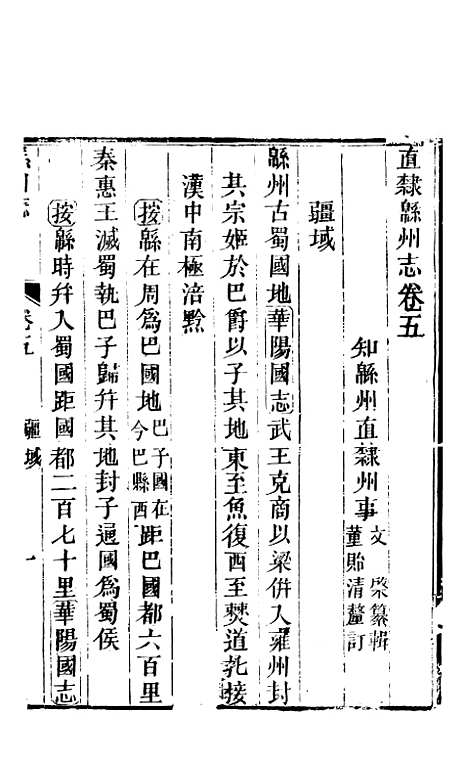 直隸緜州志卷五
知緜州直隸州事文棨纂輯
董貽清釐訂
疆域
緜州古蜀國地華陽國志武王克商以梁併入雍州封
其宗姬於巴爵以子其地東至魚復西至僰道北接
漢中南極涪黔
按緜在周爲巴國地巴子國在今巴縣西距巴國都六百里
秦惠王滅蜀執巴子歸幷其地封子通國爲蜀侯
按緜時幷入蜀國距國都二百七十里華陽國志
卷五
疆域
一